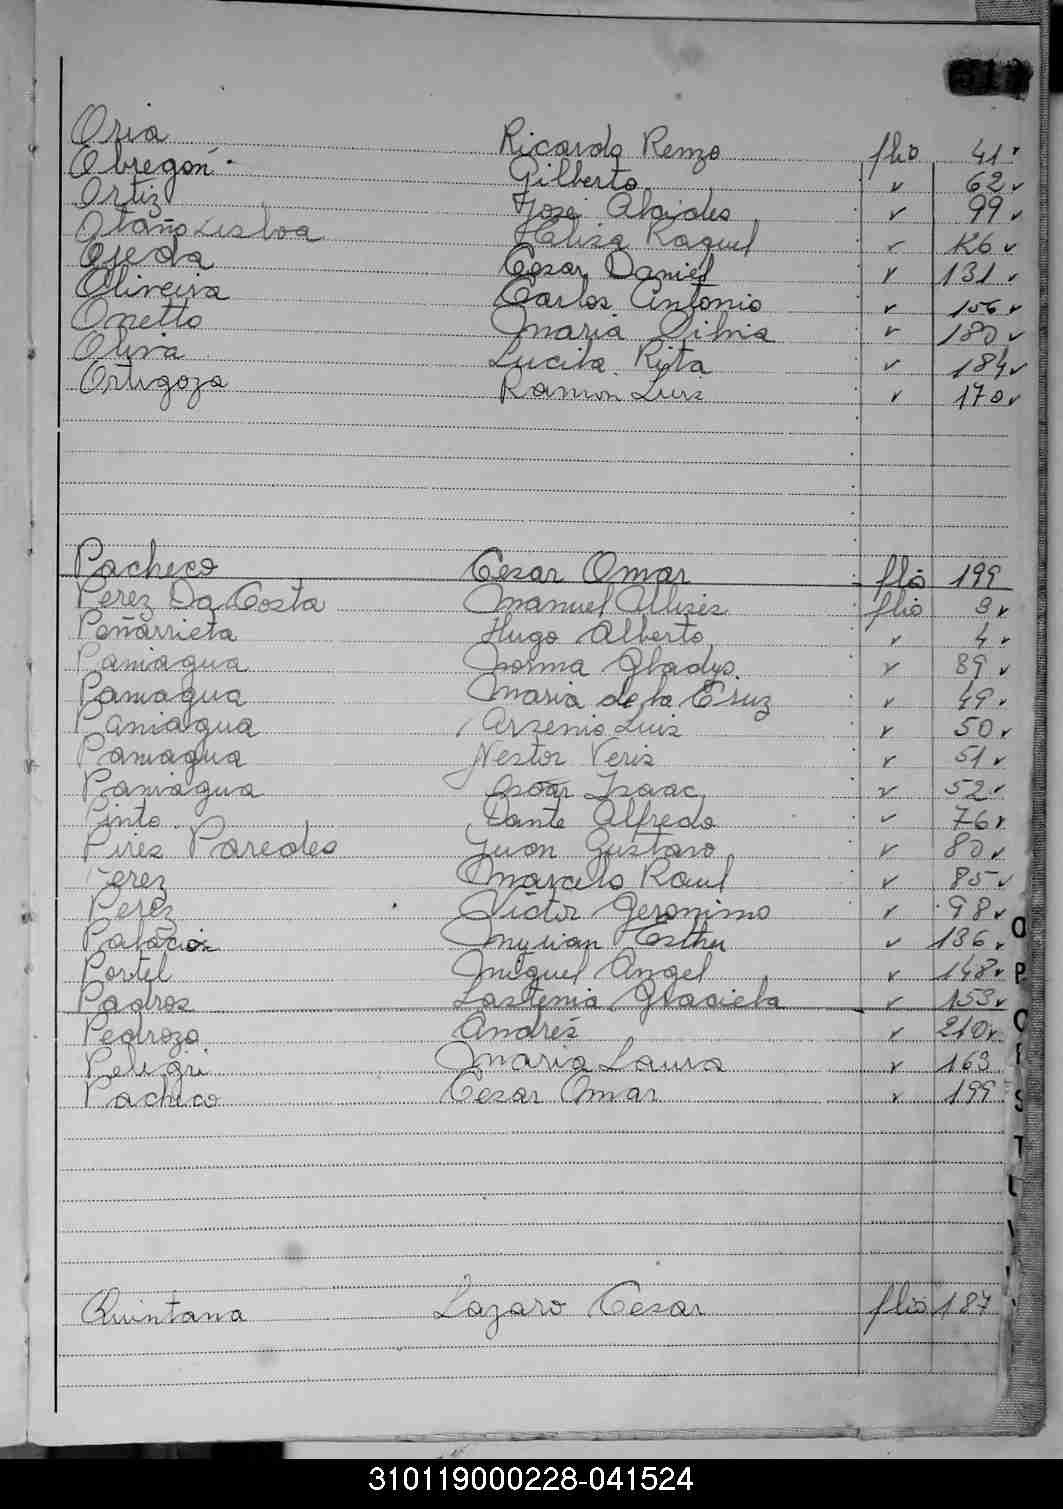 Oria Ricardo Renzo flio 41
Obregón Gilberto v 62 v
Ortiz José Alcides v 99 v
Otaño Lisboa Raquel v 126 v
Ojeda Cesar Daniel v 131
Oliveira Carlos Antonio v 156 v
Onetto Maria Silvia v 180 v
Oliva Lucila Rita v 184 v
Ortigoza Ramon Luis v 170 v
Pacheco Cesar Omar flio 199
Perez Da Costa Manuel Ulises flio 3 v
Peñarrieta Hugo Alberto v 4 v
Paniagua Norma Gladys v 89 v
Paniagua Maria de la Cruz v 49 v
Paniagua Arsenio Luis v 50 v
Paniagua Nestor v 51 v
Paniagua Oscar Isaac v 52 v
Pinto Dante Alfredo v 76 v
Pires Paredes Juan Gustavo v 80 v
Perez Marcelo Raul v 85 v
Perez Victor Geronimo v 98 v
Palacio Myrian Esther v 136 v
Portel Miguel Angel v 148 v
Padros Lastenia Graciela v 153 v
Pedrozo Andrés v 210 v
Peligri Maria Laura v 163
Pacheco Cesar Omar v 199
Quintana Lazaro Cesar flio 187
310119000228-041524